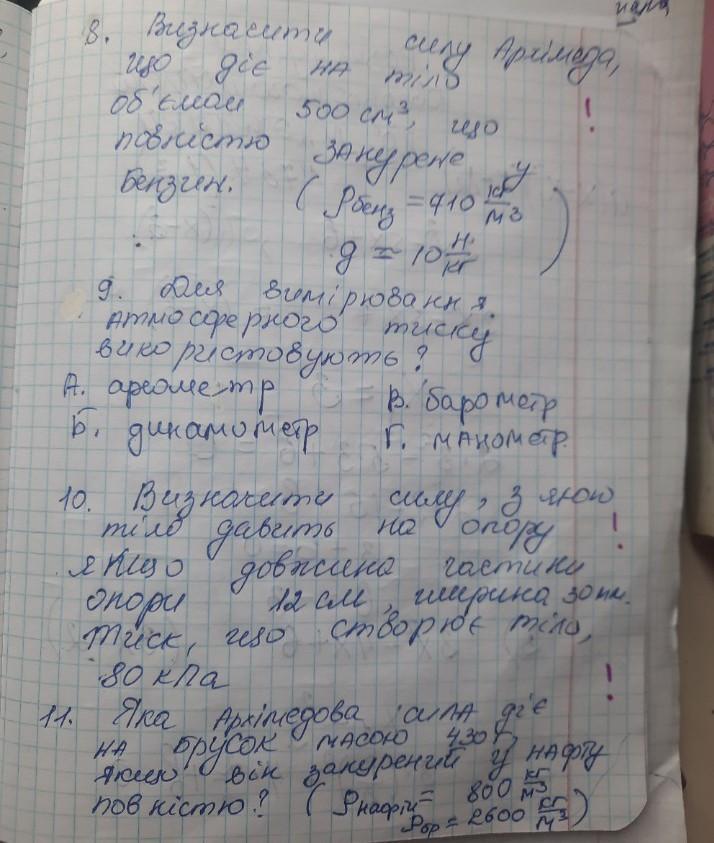 8. Визначити силу Архімеда,
що діє на тіло
об'ємом 500 см³, що
повністю занурене у
бензин. (ρбенз = 710 кг/м³
g = 10 Н/кг)
9. Для вимірювання
атмосферного тиску
використовують?
А. ареометр В. барометр
Б. динамометр Г. манометр.
10. Визначити силу, з якою
тіло давить на опору
якщо довжина частини
опори 12 см, ширина 30 мм.
Тиск, що створює тіло,
80 кПа
11. Яка Архімедова сила діє
на брусок масою 430 г,
якщо він занурений у нафту
повністю? (ρнафти = 800 кг/м³
ρбр = 2600 кг/м³)